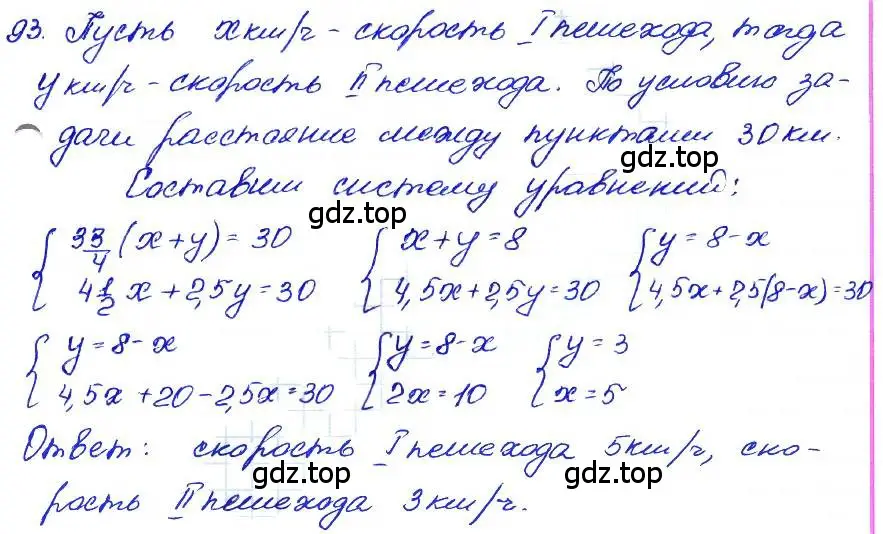 93. Пусть x км/ч - скорость I пешехода, тогда
y км/ч - скорость II пешехода. По условию за-
дачи расстояние между пунктами 30 км.
gdz.top
Составим систему уравнений:
gdz.top
{ 3 3/4 (x+y) = 30 { x+y=8 { y=8-x
4 1/2 x + 2,5y = 30 4,5x+2,5y=30 4,5x+2,5(8-x)=30
{ y=8-x { y=8-x { y=3
4,5x+20-2,5x=30 2x=10 x=5
Ответ: скорость I пешехода 5 км/ч, ско-
gdz.top
рость II пешехода 3 км/ч.
gdz.top